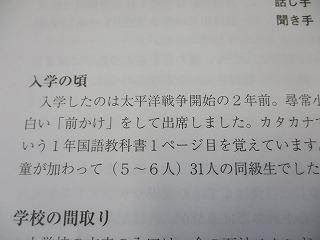 話し手
聞き手
入学の頃
入学したのは太平洋戦争開始の２年前。尋常小
白い「前かけ」をして出席しました。カタカナで
いう１年国語教科書１ページ目を覚えています。
童が加わって（５～６人）31人の同級生でした
学校の間取り